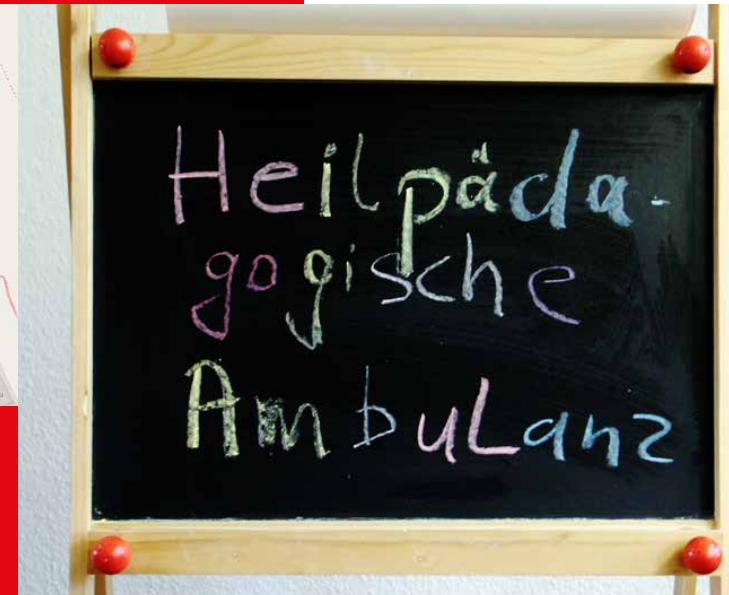 Heilpäda-
gogische
AmbuLanz